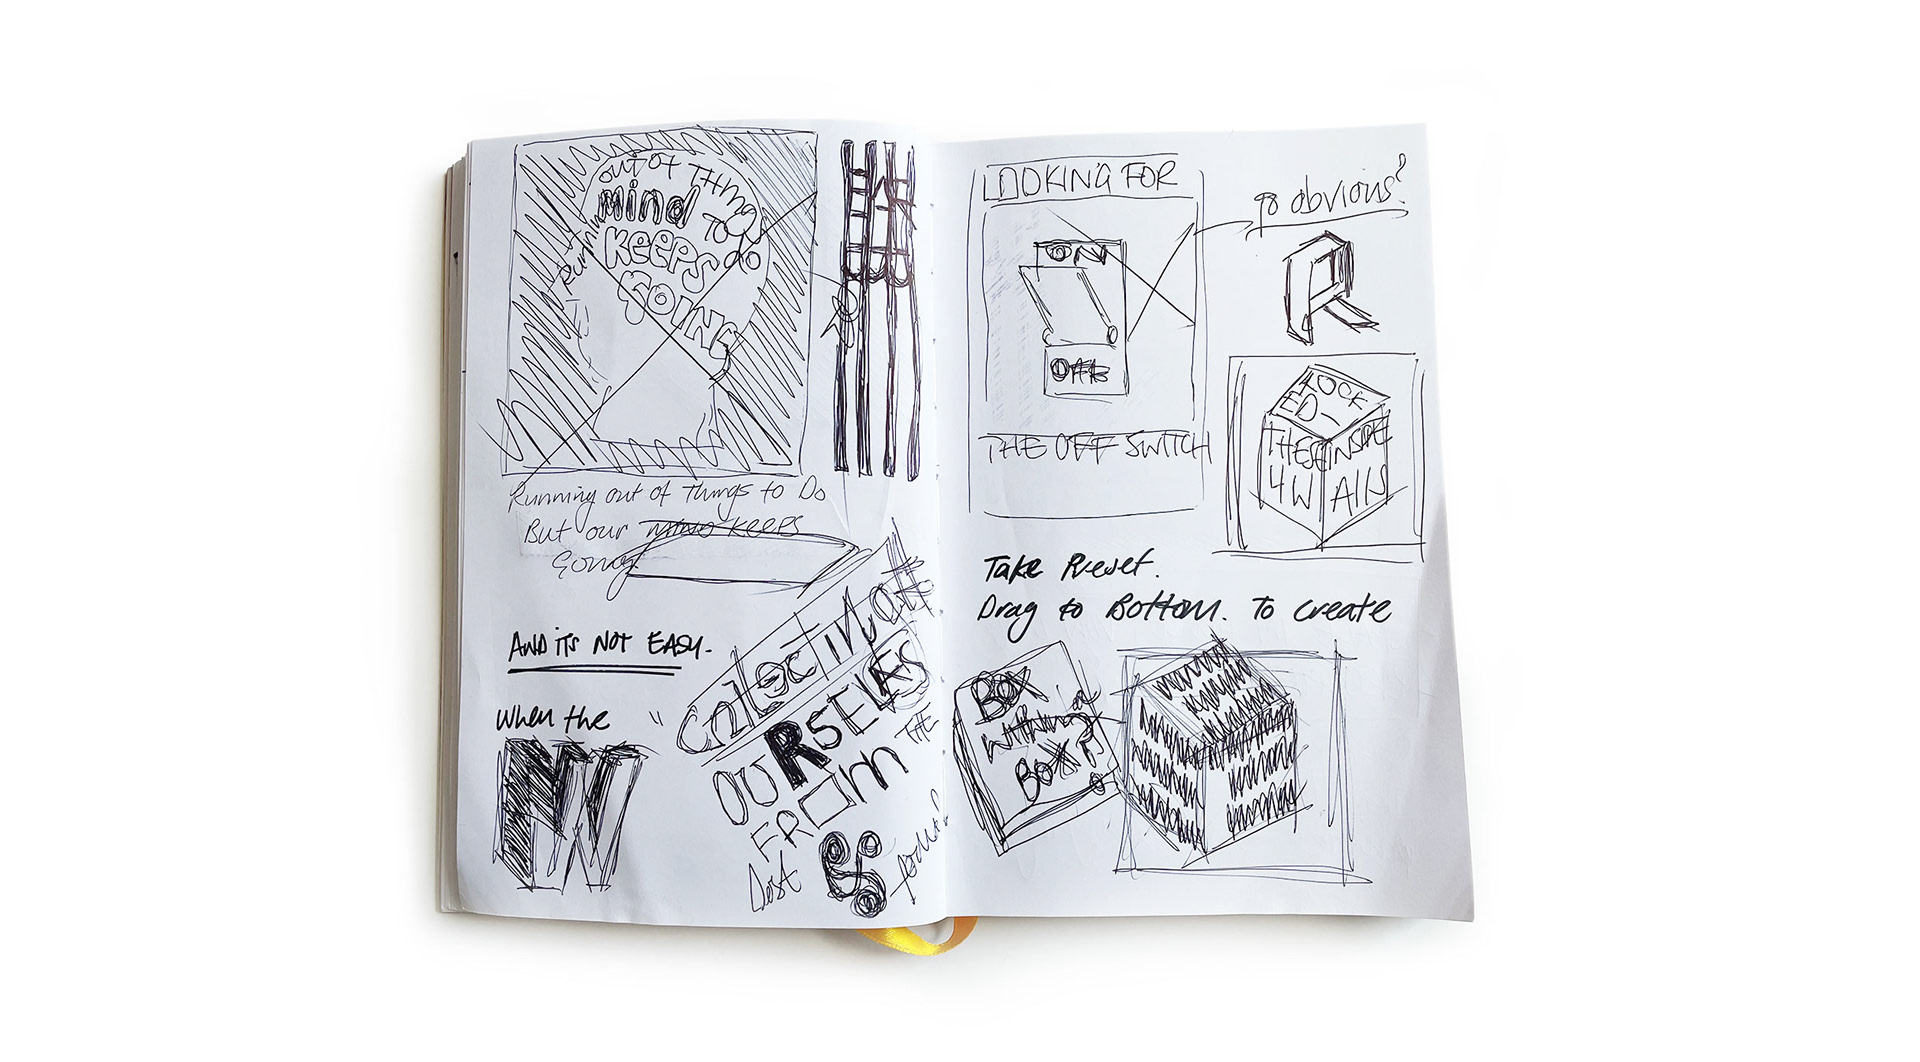 out of Things
mind To
Keeps Do
Going
Running out of Things to Do
But our MIND KEEPS
Going
AND ITS NOT EASY.
When the
OURSELVES
FROM THE
LOOKING FOR
ON
OFF
THE OFF SWITCH
To obvious?
LOCK
ED-
THESE INSIDE
4 WAllS
Take Preset.
Drag to Bottom. To create
BOX
WITHIN a
BOX?